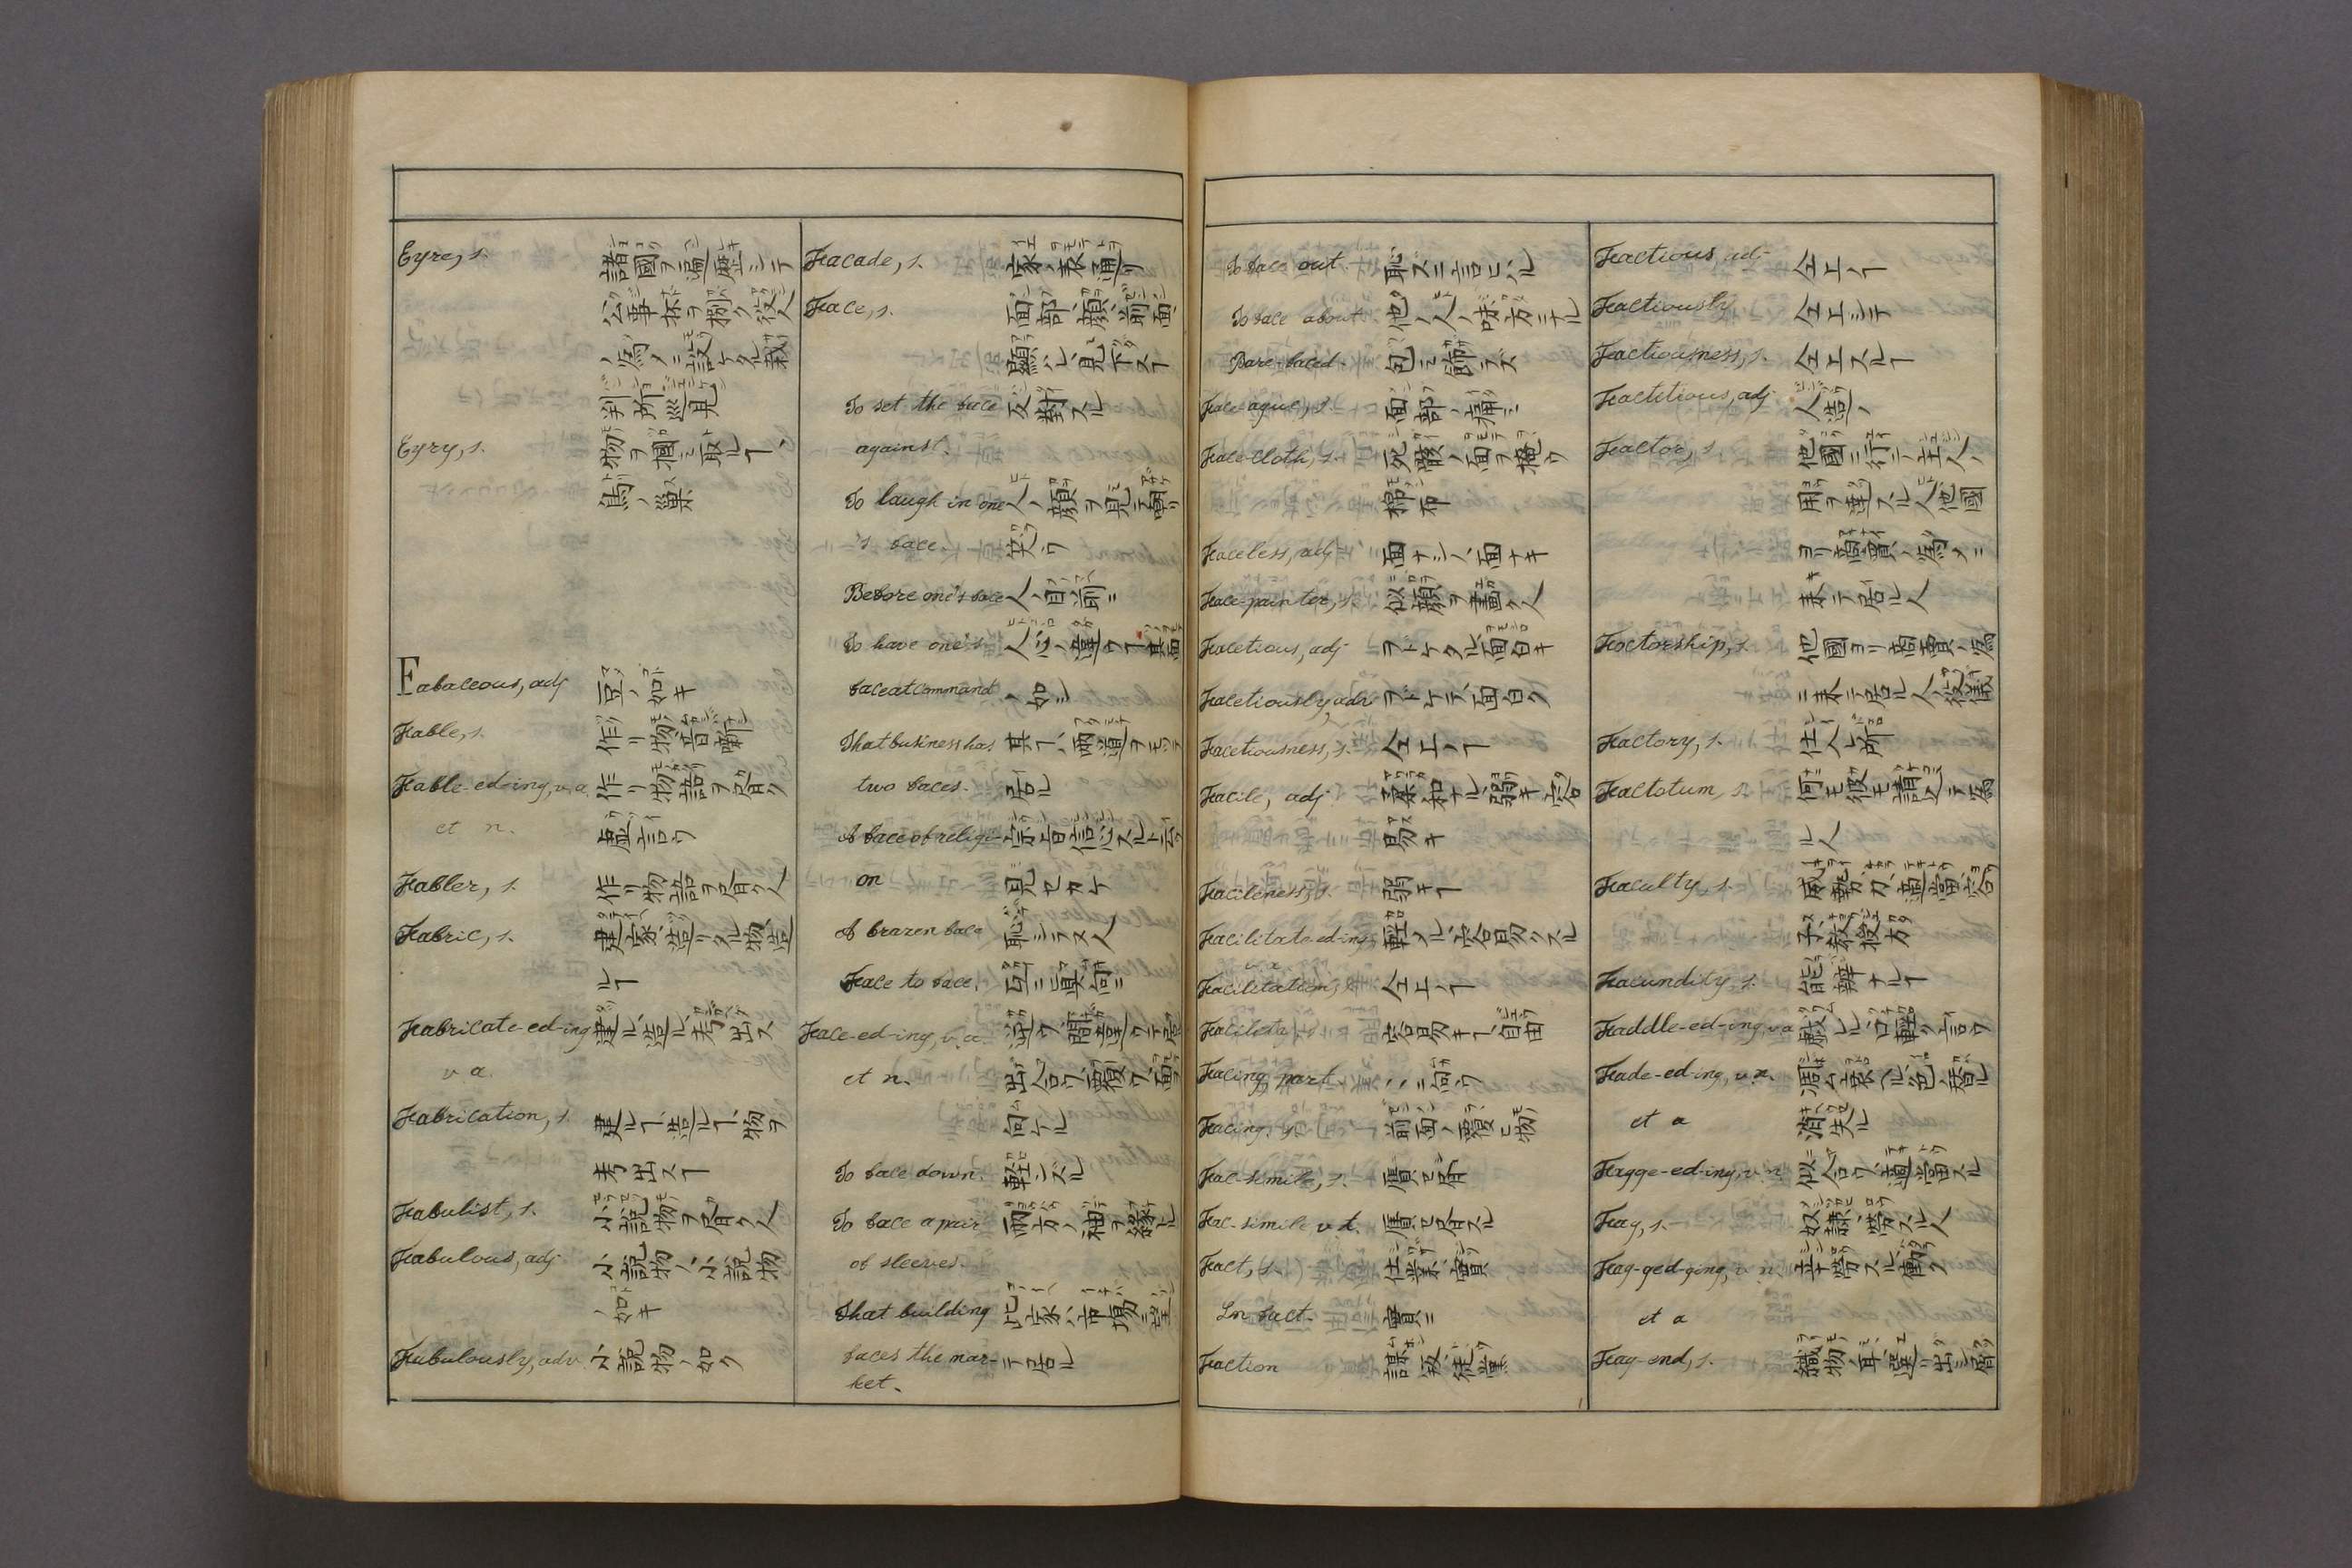 Eyre, s. 諸國ヲ巡歴シテ
公事抔ヲ捌ク役人
ノ為ノニ設ケタル裁
判所巡見
Eyry, s. 物ヲ掴ミ取ルヿ、
鳥ノ巣
Fabaceous, adj 豆ノ如キ
Fable, s. 作リ物語昔噺
Fable-ed-ing, v.a. 作リ物語ヲ書ク
et n. 虚言ヲ
Fabler, s. 作リ物語ヲ書ク人
Fabric, s. 建家、造リタル物、造
ルヿ
Fabricate-ed-ing 建ル、造ル、考出ス
v a.
Fabrication, s. 建ルヿ、造ルヿ、物ヲ
考出スヿ
Fabulist, s. 小説物ヲ書ク人
Fabulous, adj 小説物ノ、小説物
ノ如キ
Fabulously, adv. 小説物ノ如ク
Facade, s. 家ノ表通リ
Face, s. 面部、顔、前面
顕ハレ、見下スヿ
To set the face 反對スル
against.
To laugh in one 人ノ顔ヲ見テ嘲リ
's face. 笑フ
Before one's face 人ノ目前ニ
To have one's
face at command ノ如シ
That business has 其ヿハ両道ヲモッテ
two faces. 居ル
A face of religi- 宗旨信心スルト云フ
on 見セカケ
A brazen face 恥シラヌ人
Face to face. 互ニ真向ニ
Face-ed-ing, v.a.
et n. 出合フ、覆フ、面ヲ
向ケル
To face down. 軽ンズル
To face a pair 両方ノ袖ヲ縁トル
of sleeves.
That building 此家ハ市場ニ望
faces the mar- テ居ル
ket.
To face out. 恥ズニ言ヒハル
To face about. 他ノ人ノ味方ニナル
Bare-faced. 包ミ飾ラズ
Face-ague, s. 面部ノ痛ミ
Face-cloth, s. 死骸ノ面ヲ掩フ
綿布
Faceless, adj 面ナシノ、面ナキ
Face-painter, s. 似顔ヲ畵ク人
Facetious, adj ヲドケタル、面白キ
Facetiously, adv ヲドケテ、面白ク
Facetiousness, s. 仝上ノヿ
Facile, adj 柔和ナル、弱キ、容
易キ
Facileness, s. 弱キヿ
Facilitate-ed-ing 軽メル、容易クスル
v. a.
Facilitation, s. 仝上ノヿ
Facility, s. 容易キヿ、自由
Facing, part. ..ニ向フ
Facing, s. 前面ノ覆ヒ物
Fac-simile, s. 贋セ書
Fac-simile v. t. 贋セ書スル
Fact, s. 仕業、實
In fact. 實ニ
Faction 謀叛、徒黨
Factious, adj 仝上ノヿ
Factiously 仝上シテ
Factiousness, s. 仝上スルヿ
Factitious, adj 人造ノ
Factor, s. 他國ニ行テ主人ノ
用ヲ達スル人、他國
ヨリ商賣ノ為メニ
来テ居ル人
Factorship, s. 他國ヨリ商賣ノ為
ニ来テ居ル人ノ役儀
Factory, s. 仕入レ所
Factotum, s. 何モ彼モ請込テ為
ル人
Faculty, s. 威勢、力、適當、容
子、教授方
Facundity, s. 能辯ナルヿ
Faddle-ed-ing, v a 戯レル、口軽ク言フ
Fade-ed-ing, v.n. 凋ム、衰ヘル、色ノ替ル
et a 消失ル
Fagge-ed-ing, v. n 似合フ、適當スル
Fag, s. 奴隷、労スル人
Fag-ged-ging, v. n. 辛労スル、働ク
et a
Fag-end, s. 織物ノ耳、選リ出シ屑